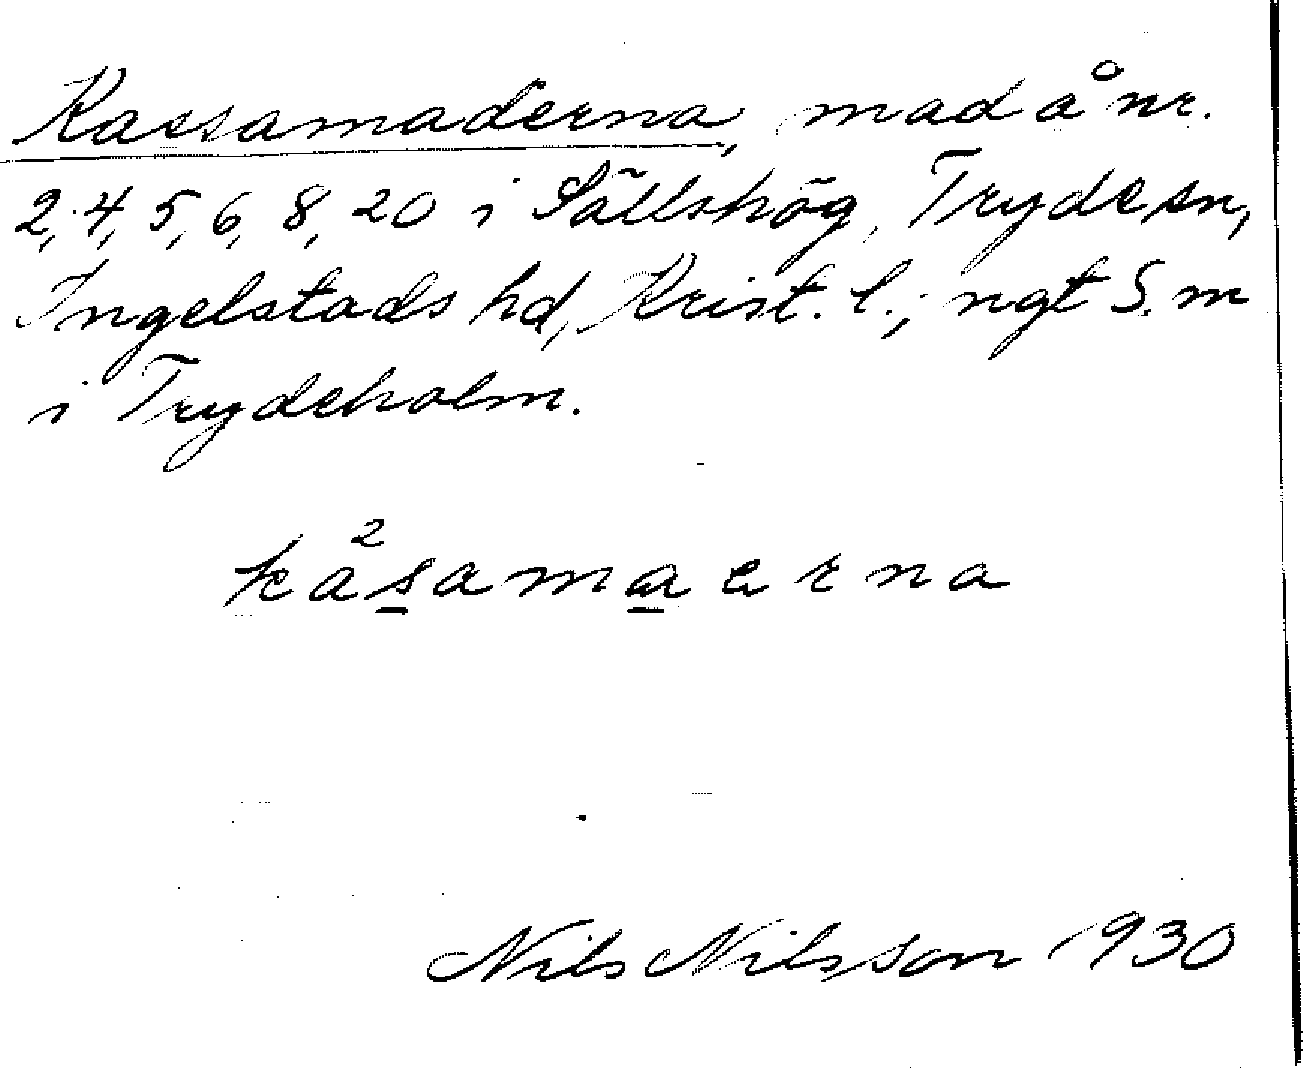 Kassamaderna, mad å nr.
2, 4, 5, 6, 8, 20 i Sällshög, Tryde sn,
Ingelstads hd, Krist. l.; ngt S. m
i Trydeholm.
2
kåsamaerna
Nils Nilsson 1930